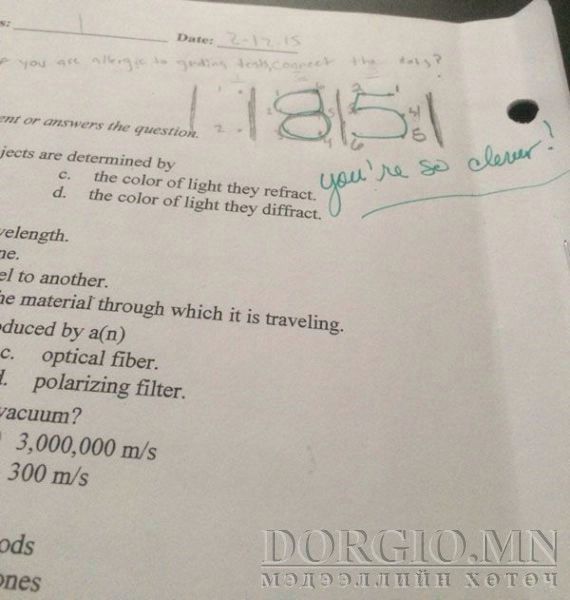 s: 1 Date: 2-17-15
you are allergic to grading tests, connect the dots?
85
ent or answers the question.
you're so clever!
jects are determined by
c. the color of light they refract.
d. the color of light they diffract.
velength.
ne.
el to another.
he material through which it is traveling.
duced by a(n)
c. optical fiber.
polarizing filter.
vacuum?
3,000,000 m/s
300 m/s
ods
ones
DORGIO.MN
МЭДЭЭЛЛИЙН ХӨТӨЧ